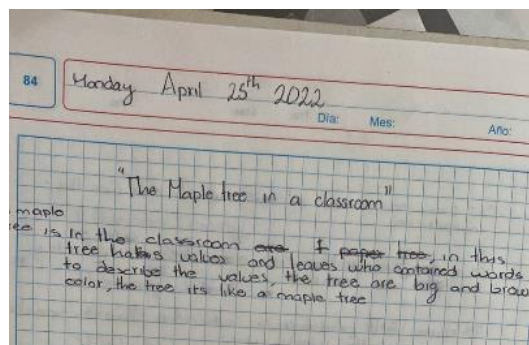 84
Monday April 25th 2022
Día: Mes: Año:
"The Maple tree in a classroom"
maple
ee is in the classroom are I paper tree, in this
tree has values and leaves who contained words
to describe the values, the tree are big and brow
color, the tree its like a maple tree